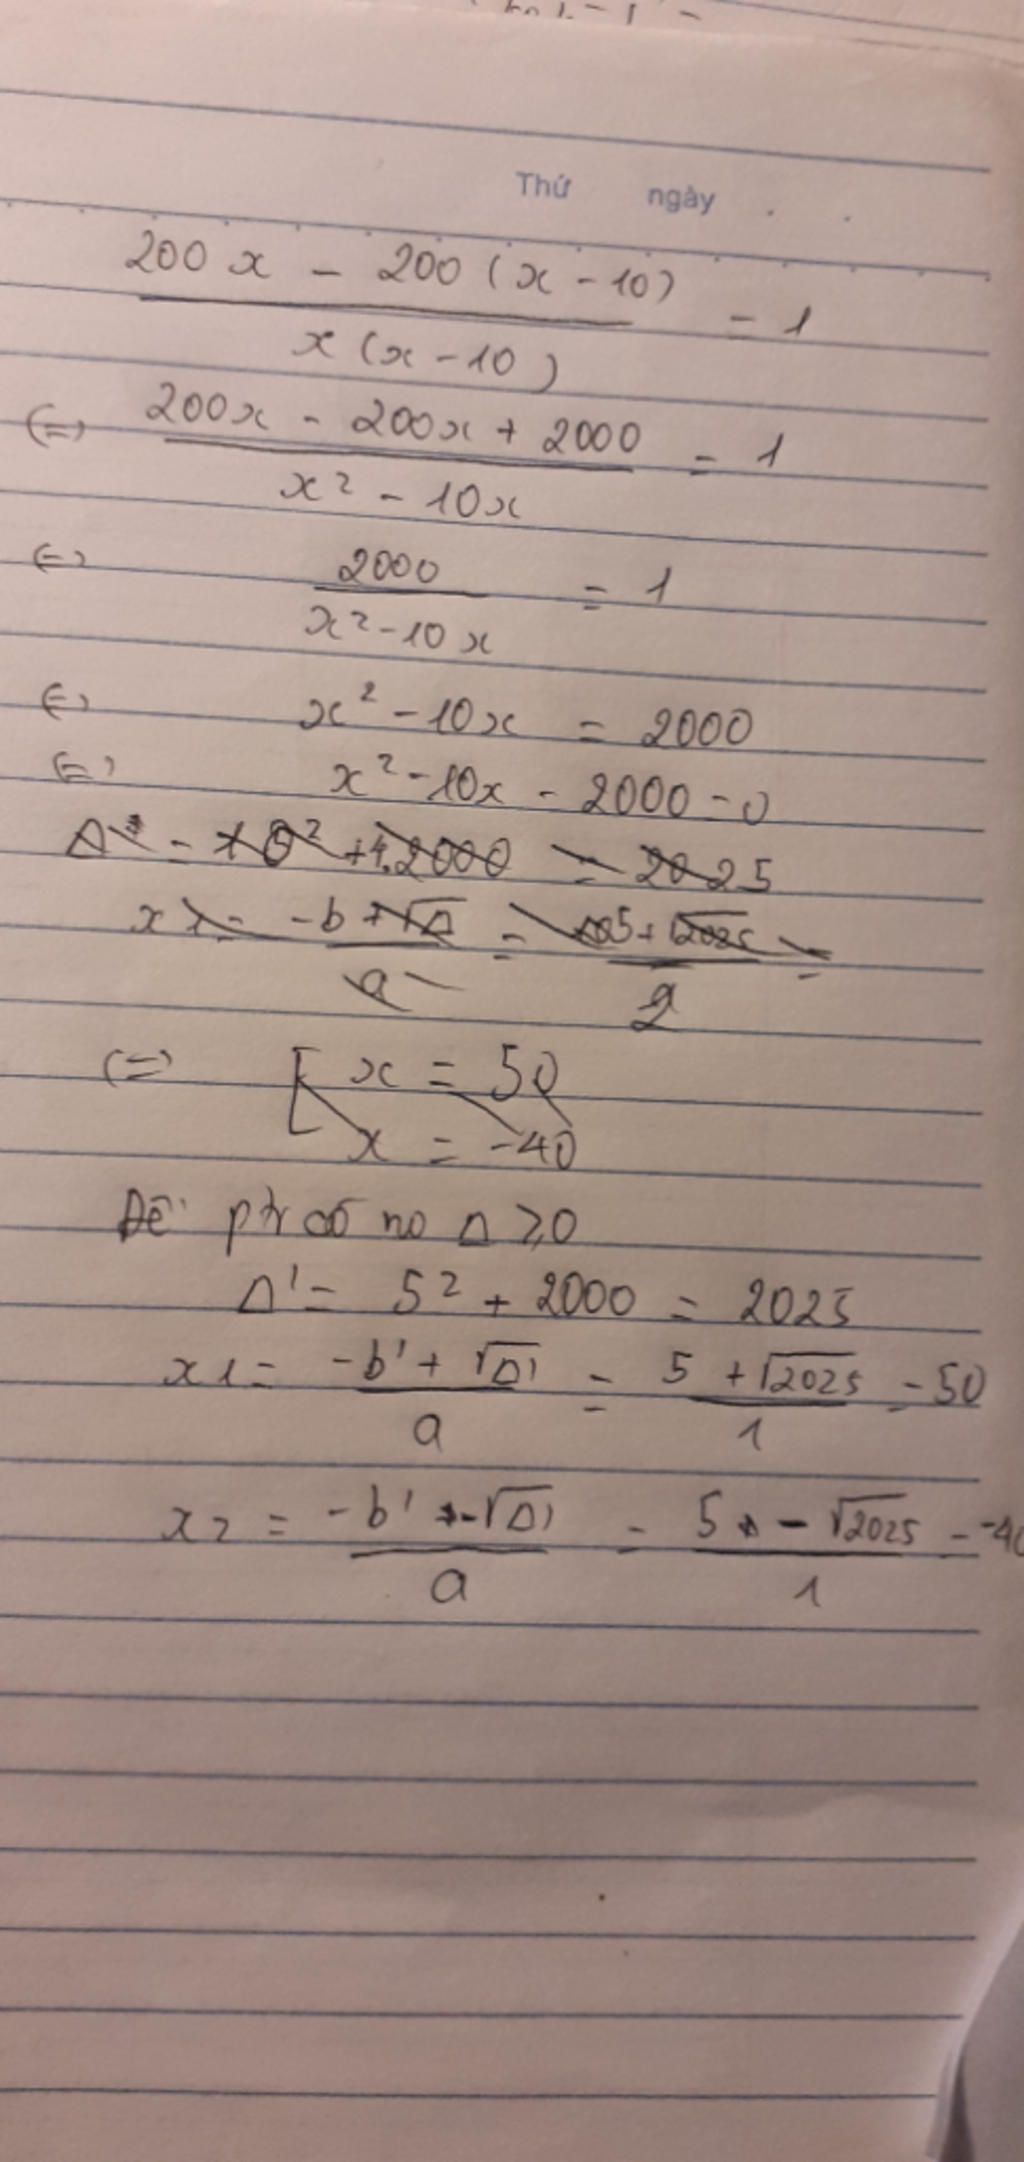 Thứ ngày
200x - 200(x-10) / x(x-10) = 1
(=) 200x - 200x + 2000 / x² - 10x = 1
(=) 2000 / x²-10x = 1
(=) x² - 10x = 2000
(=) x² - 10x - 2000 = 0
Δ = 10² + 4.2000 = 2025
x1 = -b + √Δ / a = 5 + √2025 / 2 =
(=) [ x = 50
x = -40
Để ptr có no Δ ≥ 0
Δ' = 5² + 2000 = 2025
x1 = -b' + √Δ' / a = 5 + √2025 / 1 = 50
x2 = -b' - √Δ' / a = 5 - √2025 / 1 = -40